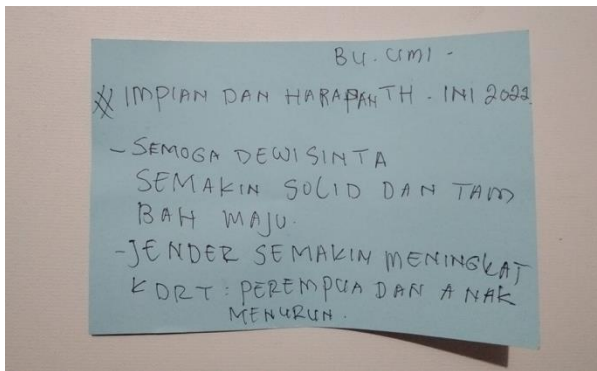 BU. UMI -
※ IMPIAN DAN HARAPAN TH. INI 2022.
- SEMOGA DEWI SINTA
SEMAKIN SOLID DAN TAM
BAH MAJU.
- JENDER SEMAKIN MENINGKAT
KDRT : PEREMPUA DAN ANAK
MENURUN.